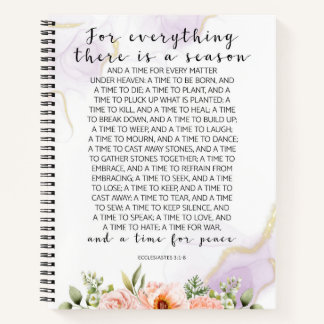 For everything
there is a season
AND A TIME FOR EVERY MATTER
UNDER HEAVEN: A TIME TO BE BORN, AND
A TIME TO DIE; A TIME TO PLANT, AND A
TIME TO PLUCK UP WHAT IS PLANTED; A
TIME TO KILL, AND A TIME TO HEAL; A TIME
TO BREAK DOWN, AND A TIME TO BUILD UP;
A TIME TO WEEP, AND A TIME TO LAUGH;
A TIME TO MOURN, AND A TIME TO DANCE;
A TIME TO CAST AWAY STONES, AND A TIME
TO GATHER STONES TOGETHER; A TIME TO
EMBRACE, AND A TIME TO REFRAIN FROM
EMBRACING; A TIME TO SEEK, AND A TIME
TO LOSE; A TIME TO KEEP, AND A TIME TO
CAST AWAY; A TIME TO TEAR, AND A TIME
TO SEW; A TIME TO KEEP SILENCE, AND
A TIME TO SPEAK; A TIME TO LOVE, AND
A TIME TO HATE; A TIME FOR WAR,
and a time for peace.
ECCLESIASTES 3:1-8